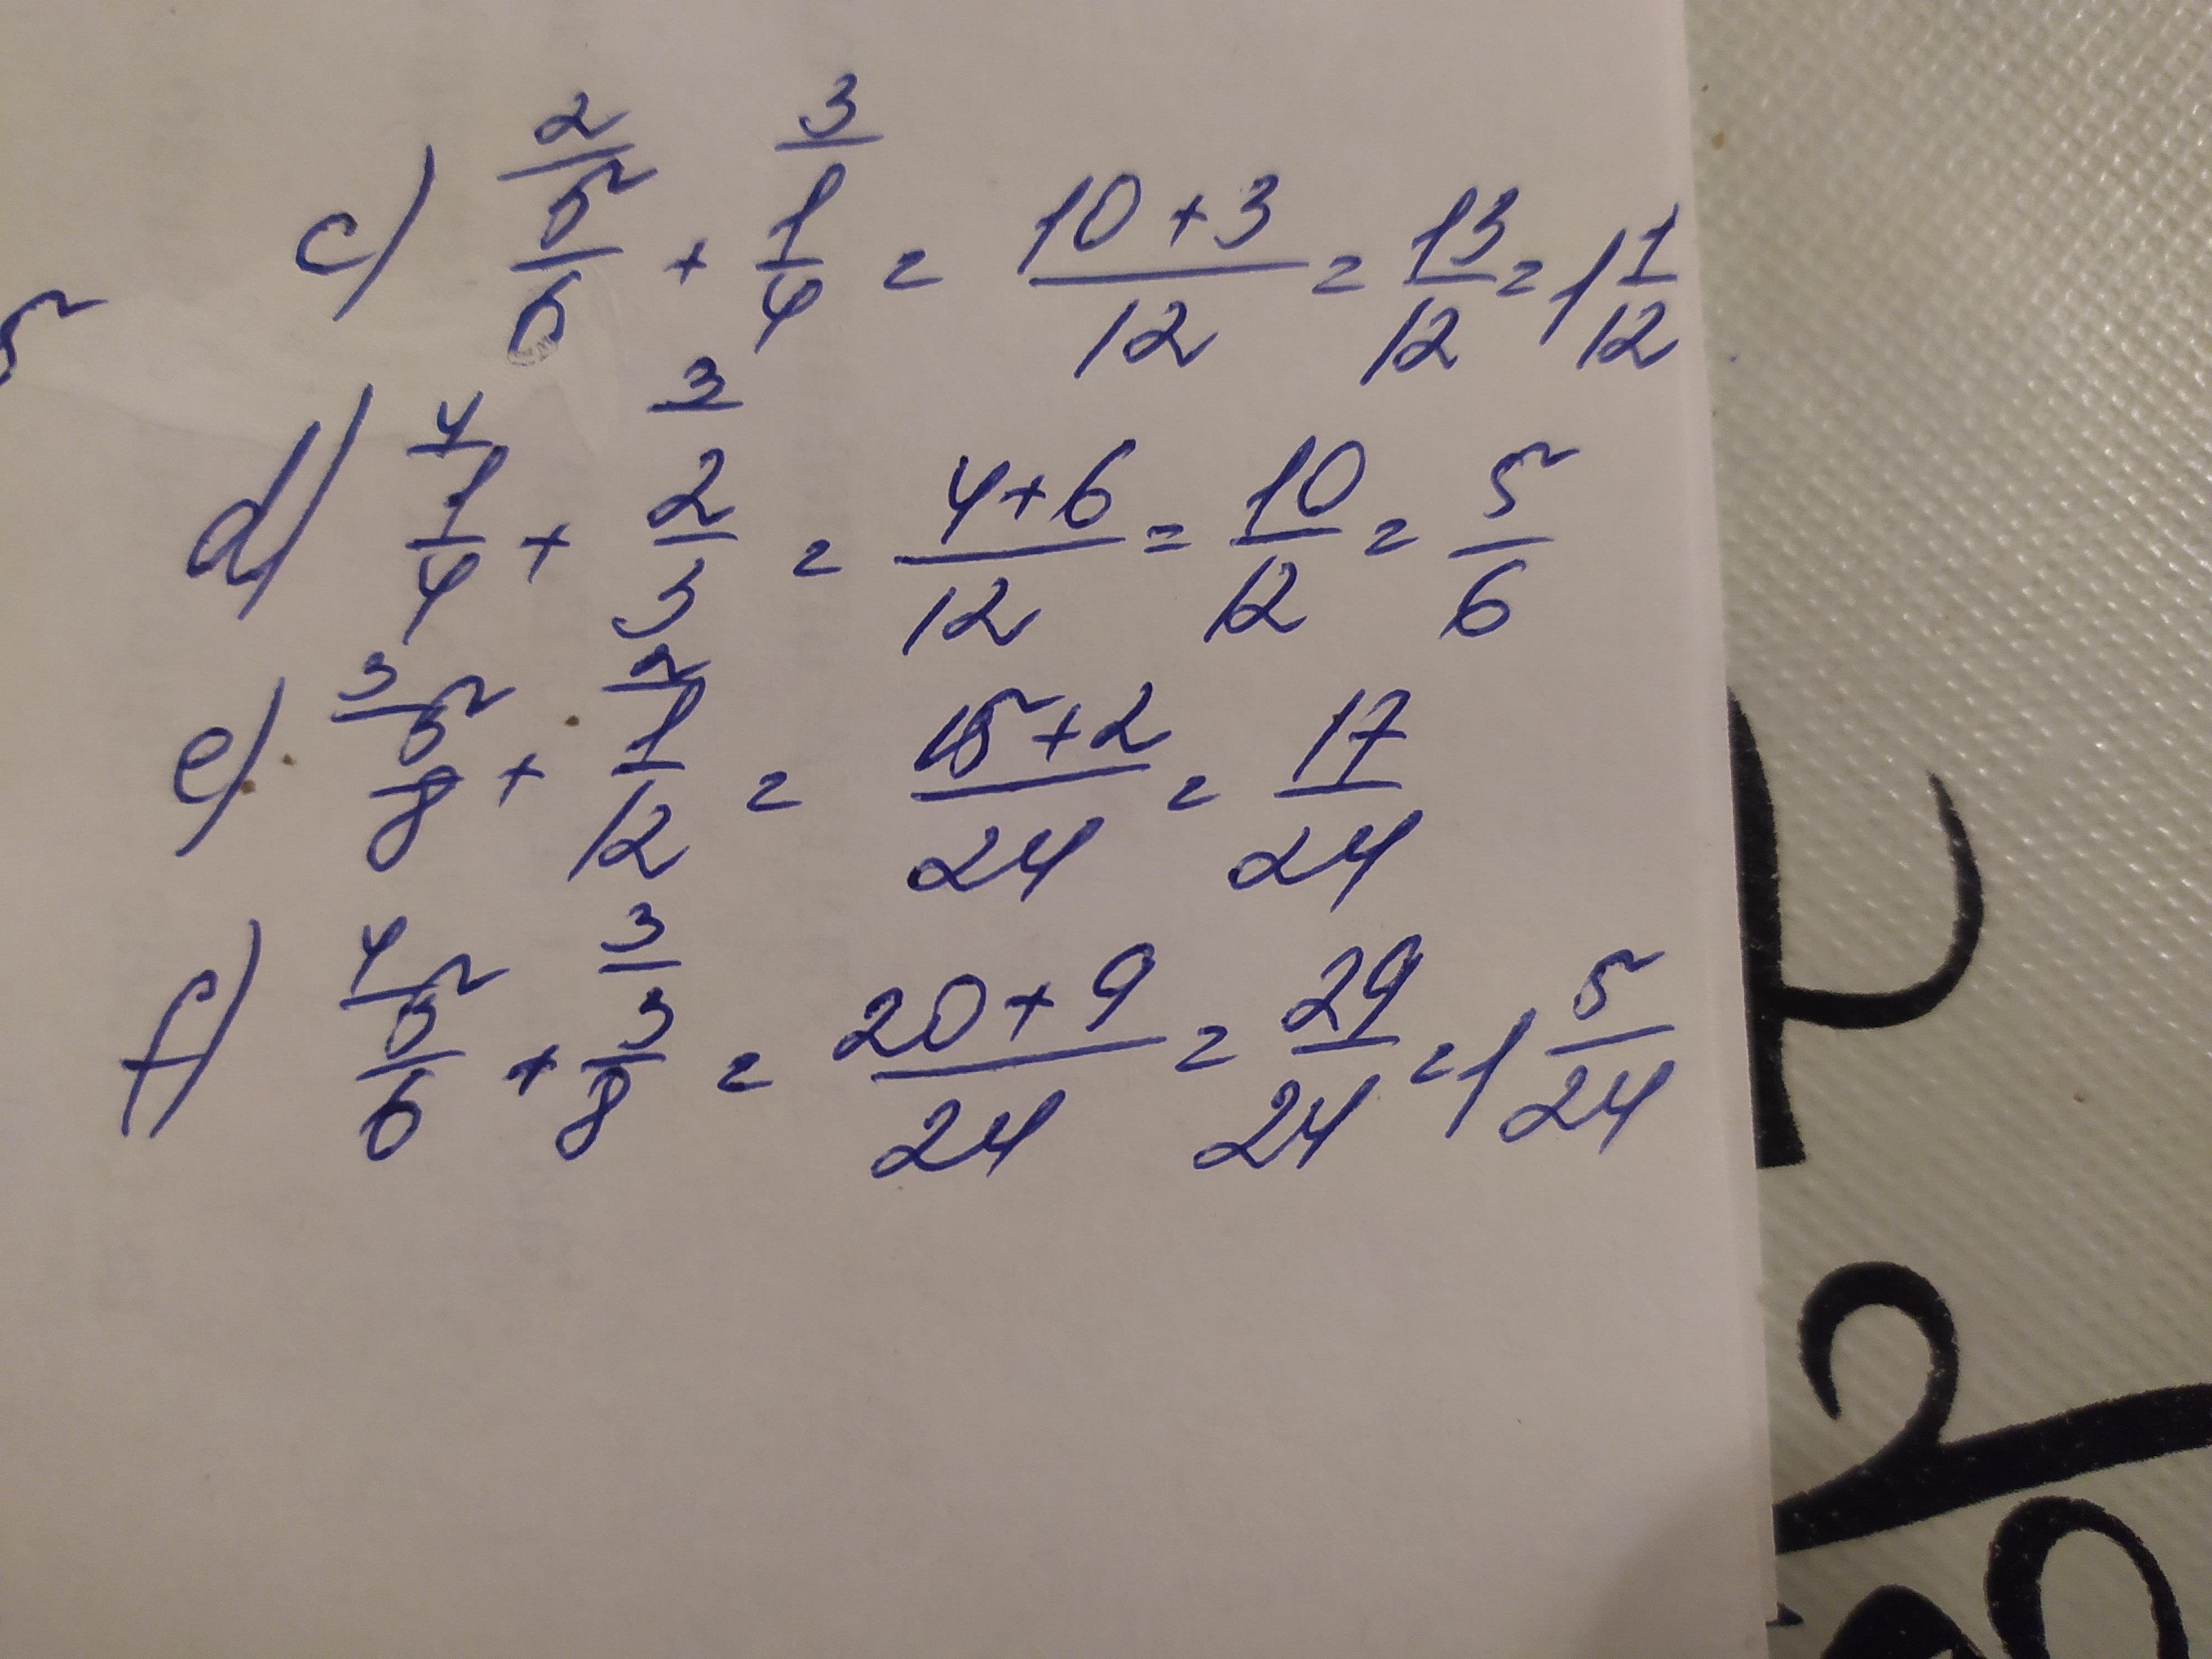 c) 2/ 5/6 + 3/ 1/4 = (10+3)/12 = 13/12 = 1 1/12
d) 4/ 1/4 + 3/ 2/3 = (4+6)/12 = 10/12 = 5/6
e) 3/ 5/8 + 2/ 1/12 = (15+2)/24 = 17/24
f) 4/ 5/6 + 3/ 3/8 = (20+9)/24 = 29/24 = 1 5/24